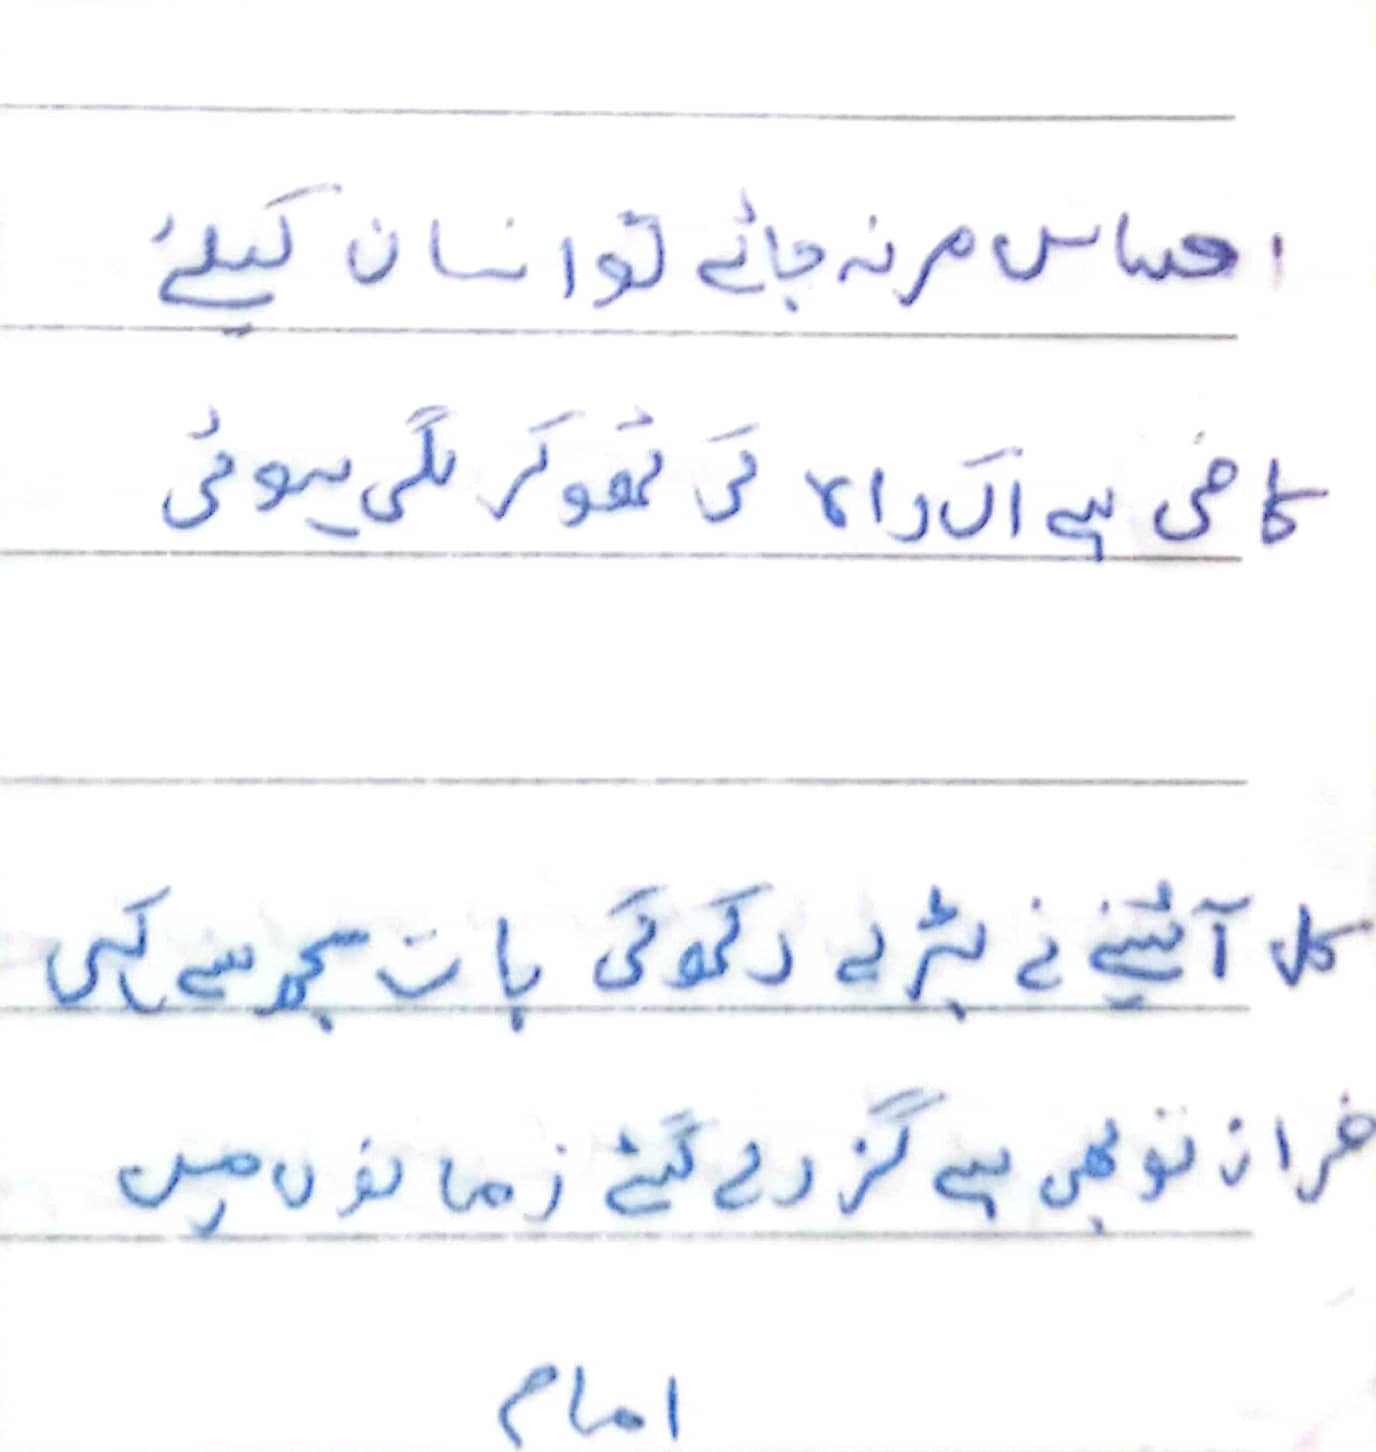 احساس مر نہ جائے تو انسان کیلئے
کافی ہے اک راہ کی ٹھوکر لگی ہوئی
کل آئینے نے بڑے دکھ کی بات مجھ سے کہی
فراز تو بھی ہے گزرے گئے زمانوں میں
امام